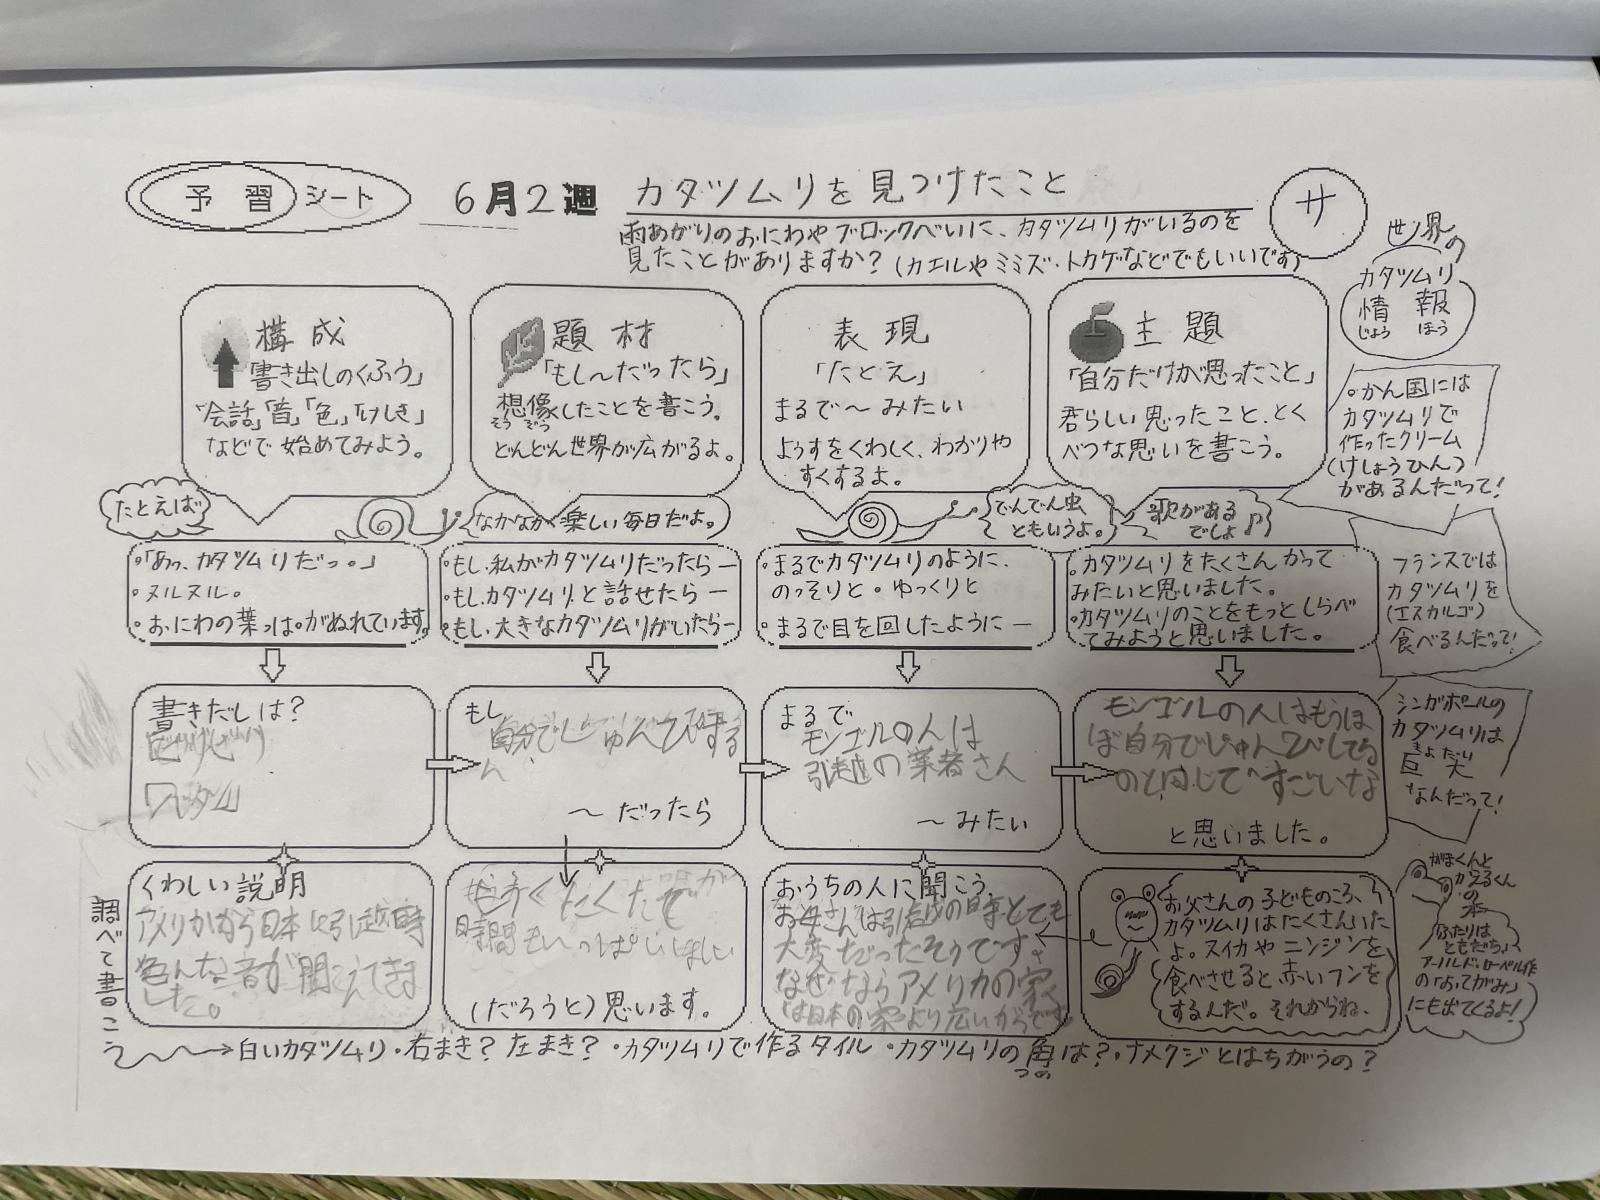 予習シート
6月2週 カタツムリを見つけたこと
サ
雨あがりのおにわやブロックべいに、カタツムリがいるのを
見たことがありますか？（カエルやミミズ・トカゲなどでもいいです）
構成
「書き出しのくふう」
"会話」「音」、「色」、「けしき」
などで始めてみよう。
題材
「もし〜だったら」
想像したことを書こう。
そうぞう
どんどん世界が広がるよ。
表現
「たとえ」
まるで〜みたい
ようすをくわしく、わかりや
すくするよ。
主題
「自分だけが思ったこと」
君らしい思ったこと、とく
べつな思いを書こう。
世界の
カタツムリ
情報
じょうほう
。かん国には
カタツムリで
作ったクリーム
（けしょうひん）
があるんだって！
たとえば
なかなか楽しい毎日だよ。
でんでん虫
ともいうよ。
歌がある
でしょ♪
・「あっ、カタツムリだっ。」
・ヌルヌル。
・おにわの葉っぱがぬれています。
・もし、私がカタツムリだったら―
・もし、カタツムリと話せたら―
・もし、大きなカタツムリがいたら―
・まるでカタツムリのように、
のっそりと・ゆっくりと
・まるで目を回したように―
・カタツムリをたくさんかって
みたいと思いました。
・カタツムリのことをもっとしらべ
てみようと思いました。
フランスでは
カタツムリを
（エスカルゴ）
食べるんだって！
書きだしは？
もし
自分でじゅんび
する
〜だったら
まるで
モンゴルの人は
引越の業者さん
〜みたい
モンゴルの人はもうほ
ぼ自分でじゅんびしてる
すごいな
と思いました。
シンガポールの
カタツムリは
きょだい
巨大
なんだって！
くわしい説明
アメリカから日本に引越時
色んな音が聞こえてきま
した。
時間もいっぱい
（だろうと）思います。
おうちの人に聞こう。
お母さんは引越の時とても
大変だったそうです。
なぜならアメリカの家
は日本の家より広いからです
お父さんの子どものころ、
カタツムリはたくさんいた
よ。スイカやニンジンを
食べさせると赤いフンを
するんだ。それからね、
がまくんと
かえるくん
の
本
「ふたりは
ともだち」
アーノルド・ローベル作
の「おてがみ」
にも出てくるよ！
調べて書こう
白いカタツムリ・右まき？左まき？・カタツムリで作るタイル・カタツムリの角は？・ナメクジとはちがうの？
つの